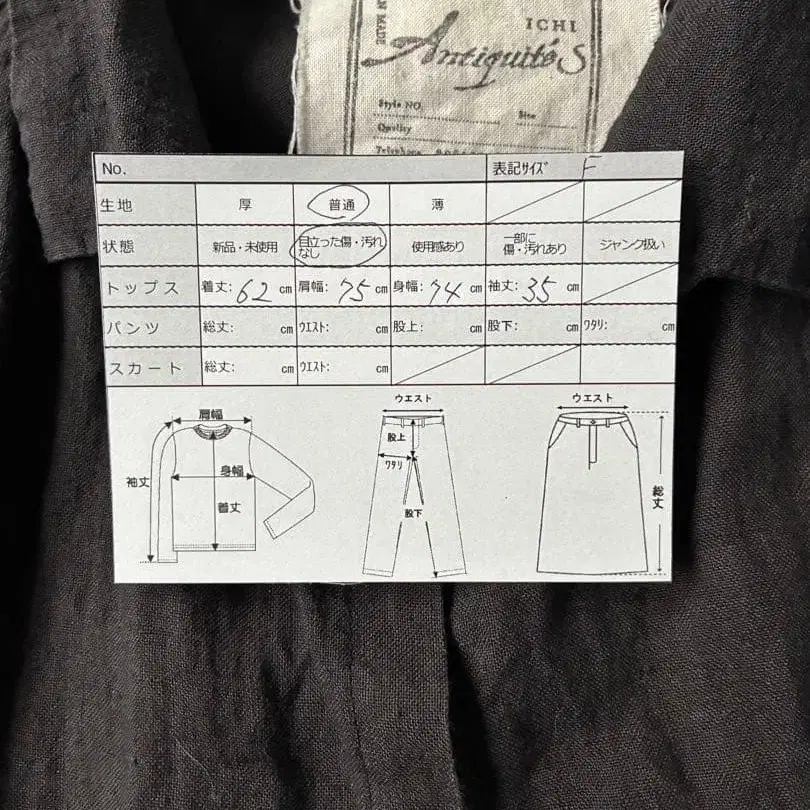 ICHI
AntiquitéS
Style NO.
Size
Quality
No. 表記ｻｲｽﾞ F
生地 厚 普通 薄
状態 新品・未使用 目立った傷・汚れなし 使用感あり 一部に傷・汚れあり ジャンク扱い
トップス 着丈: 62 cm 肩幅: 75 cm 身幅: 74 cm 袖丈: 35 cm
パンツ 総丈: cm ｳｴｽﾄ: cm 股上: cm 股下: cm ﾜﾀﾘ: cm
スカート 総丈: cm ｳｴｽﾄ: cm
肩幅
袖丈
身幅
着丈
ウエスト
股上
ﾜﾀﾘ
股下
ウエスト
総丈